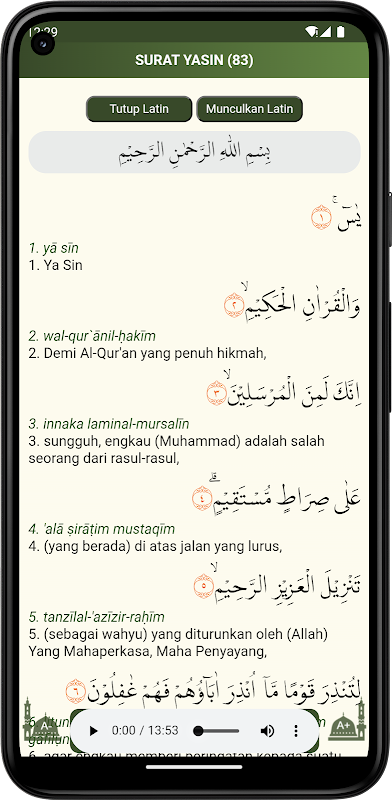 12:29
SURAT YASIN (83)
Tutup Latin
Munculkan Latin
بِسْمِ اللهِ الرَّحْمٰنِ الرَّحِيْمِ
يٰسۤ ۚ ١
1. yā sīn
1. Ya Sin
وَالْقُرْاٰنِ الْحَكِيْمِۙ ٢
2. wal-qur`ānil-ḥakīm
2. Demi Al-Qur'an yang penuh hikmah,
اِنَّكَ لَمِنَ الْمُرْسَلِيْنَۙ ٣
3. innaka laminal-mursalīn
3. sungguh, engkau (Muhammad) adalah salah
seorang dari rasul-rasul,
عَلٰى صِرَاطٍ مُّسْتَقِيْمٍۗ ٤
4. 'alā ṣirāṭim mustaqīm
4. (yang berada) di atas jalan yang lurus,
تَنْزِيْلَ الْعَزِيْزِ الرَّحِيْمِۙ ٥
5. tanzīlal-'azīzir-raḥīm
5. (sebagai wahyu) yang diturunkan oleh (Allah)
Yang Mahaperkasa, Maha Penyayang,
لِتُنْذِرَ قَوْمًا مَّآ اُنْذِرَ اٰبَاۤؤُهُمْ فَهُمْ غٰفِلُوْنَ ٦
A-
0:00 / 13:53
A+
6. agar engkau memberi peringatan kepada suatu